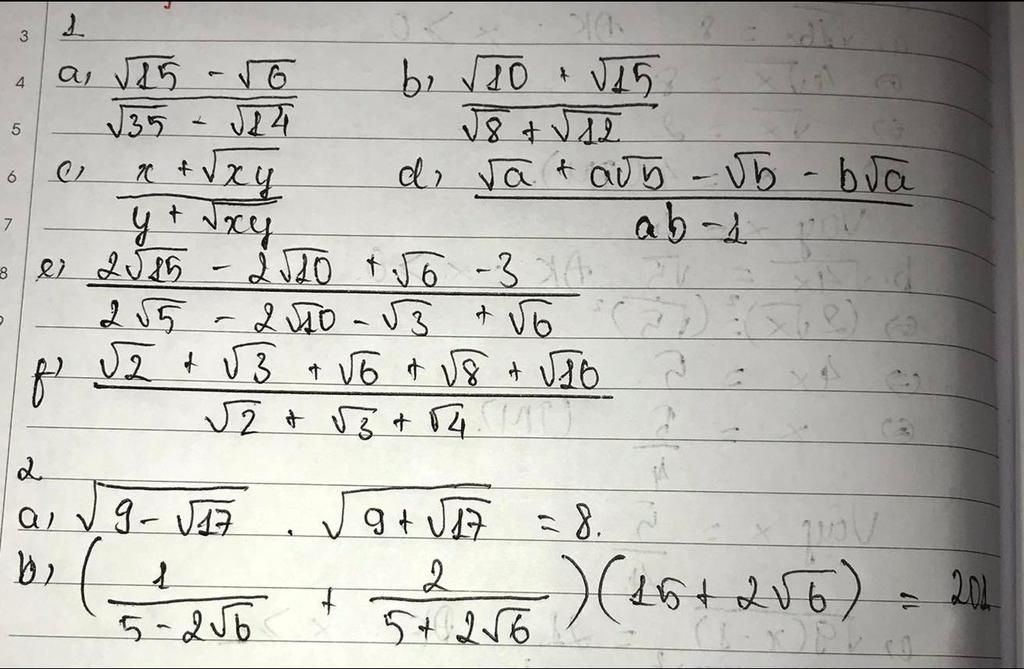 1
a, (√15 - √6)/(√35 - √14) b, (√10 + √15)/(√8 + √12)
c, (x + √xy)/(y + √xy) d, (√a + a√b - √b - b√a)/(ab - 1)
e, (2√15 - 2√10 + √6 - 3)/(2√5 - 2√10 - √3 + √6)
f, (√2 + √3 + √6 + √8 + √16)/(√2 + √3 + √4)
2
a, √(9 - √17) . √(9 + √17) = 8.
b, (1/(5 - 2√6) + 2/(5 + 2√6))(15 + 2√6) = 201